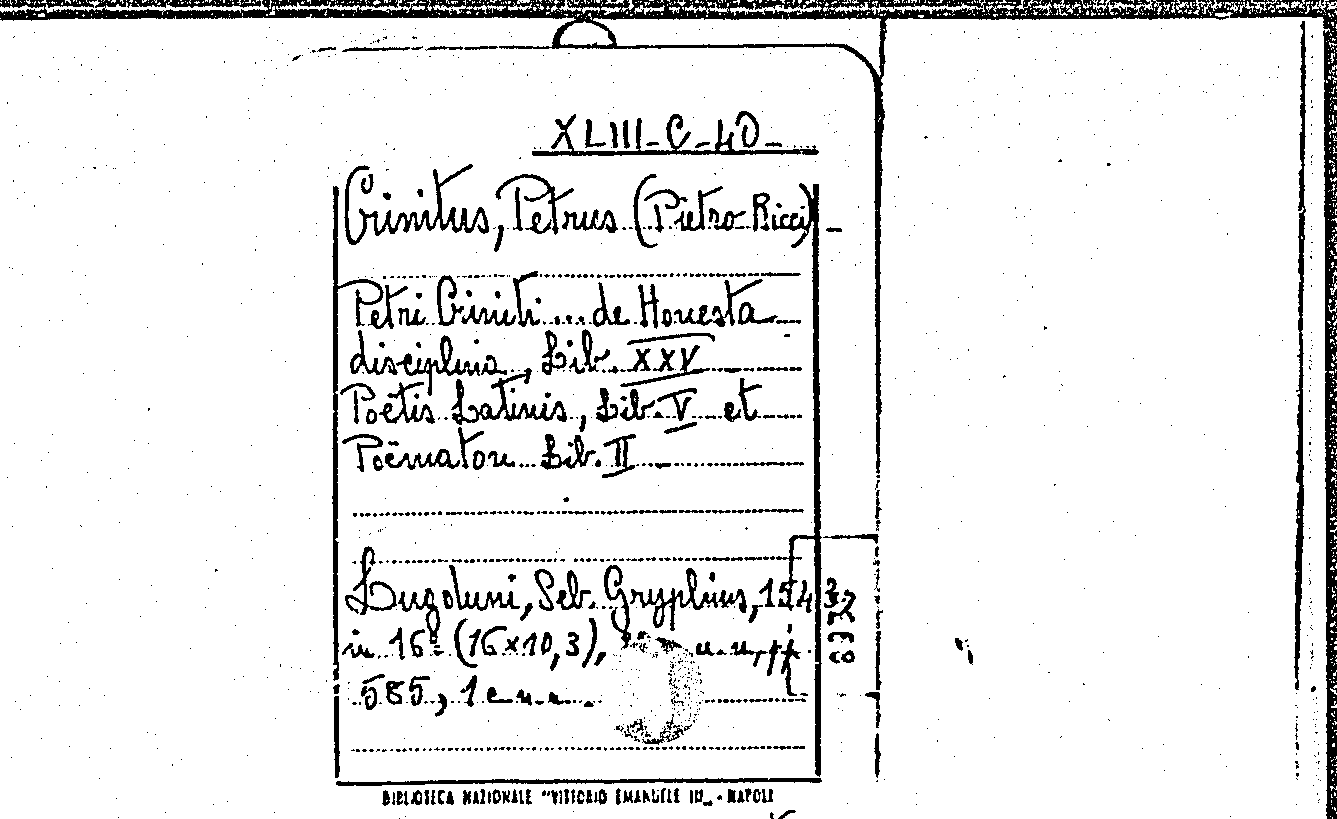 XLIII-C-40-
Crinitus, Petrus (Pietro Ricci) -
Petri Criniti... de Honesta
disciplina, Lib. XXV
Poëtis Latinis, Lib. V et
Poëmaton Lib. II
Lugduni, Seb. Gryphius, 1543
in 16º (16x10,3), n.n, pp
585, 1 c n.n.
BIBLIOTECA NAZIONALE "VITTORIO EMANUELE III" - NAPOLI